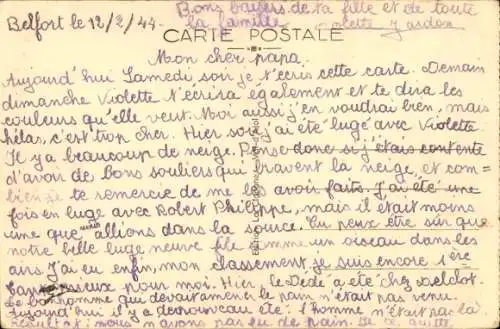 Bons baisers de ta fille et de toute
Belfort le 12/2/44.
la famille
CARTE POSTALE
Mon cher papa.
Aujourd'hui Samedi soir je t'écris cette carte. Demain
dimanche Violette t'écrira également et te dira les
couleurs qu'elle veut. Moi aussi j'en voudrai bien, mais
hélas, c'est trop cher. Hier soir j'ai été lugé avec Violette
Il y a beaucoup de neige. Pense donc si j'étais contente
d'avoir de bons souliers qui bravent la neige, et com-
bien je te remercie de me les avoir faits. J'ai été une
fois en luge avec Robert Philippe, mais il était moins
une que allions dans la source. Tu peux être sûr que
notre belle luge neuve file comme un oiseau dans les
airs. J'ai eu enfin, mon classement je suis encore 1ère
pour moi. Hier, le Dédé a été chez Delclot
Le bonhomme qui devait amener le pain n'était pas venu.
Aujourd'hui il y a de nouveau été : l'homme n'était pas là
Résultat : nous n'avons pas eu de pain.